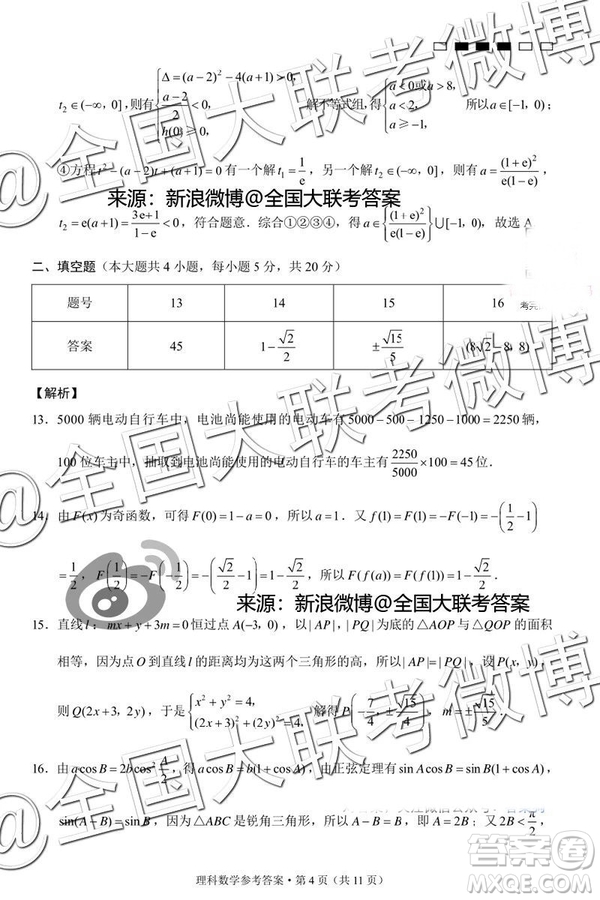 t₂∈(-∞, 0], 则有{Δ=(a-2)²-4(a+1)>0, (a-2)/2<0, h(0)≥0, 解不等式组, 得{a<0或a>8, a<2, a≥-1, 所以a∈[-1, 0);
④方程t²-(a-2)t+(a+1)=0有一个解t₁=1/e, 另一个解t₂∈(-∞, 0], 则有a=(1+e)²/e(1-e),
来源：新浪微博@全国大联考答案
t₂=e(a+1)=(3e+1)/(1-e)<0, 符合题意. 综合①②③④, 得a∈{(1+e)²/e(1-e)}∪[-1, 0), 故选A
二、填空题（本大题共4小题，每小题5分，共20分）
题号 13 14 15 16
答案 45 1-√2/2 ±√15/5 (8√2-8, 8)
【解析】
13. 5000辆电动自行车中，电池尚能使用的电动车有5000-500-1250-1000=2250辆，
100位车主中，抽取到电池尚能使用的电动自行车的车主有2250/5000×100=45位.
14. 由F(x)为奇函数，可得F(0)=1-a=0，所以a=1. 又f(1)=F(1)=-F(-1)=-(1/2-1)
=1/2, F(1/2)=-F(-1/2)=-(√2/2-1)=1-√2/2, 所以F(f(a))=F(f(1))=1-√2/2.
来源：新浪微博@全国大联考答案
15. 直线l: mx+y+3m=0恒过点A(-3, 0)，以|AP|, |PQ|为底的△AOP与△QOP的面积
相等，因为点O到直线l的距离均为这两个三角形的高，所以|AP|=|PQ|，设P(x, y)，
则Q(2x+3, 2y)，由{x²+y²=4, (2x+3)²+(2y)²=4, 解得P(-7/4, ±√15/4), m=±√15/5.
16. 由acosB=2bcos²A/2, 得acosB=b(1+cosA), 由正弦定理有sinAcosB=sinB(1+cosA),
sin(A-B)=sinB, 因为△ABC是锐角三角形, 所以A-B=B, 即A=2B; 又2B<π/2,
理科数学参考答案·第4页（共11页）
@全国大联考微博
@全国大联考微博
@全国大联考微博
答案圈
MXQE.COM